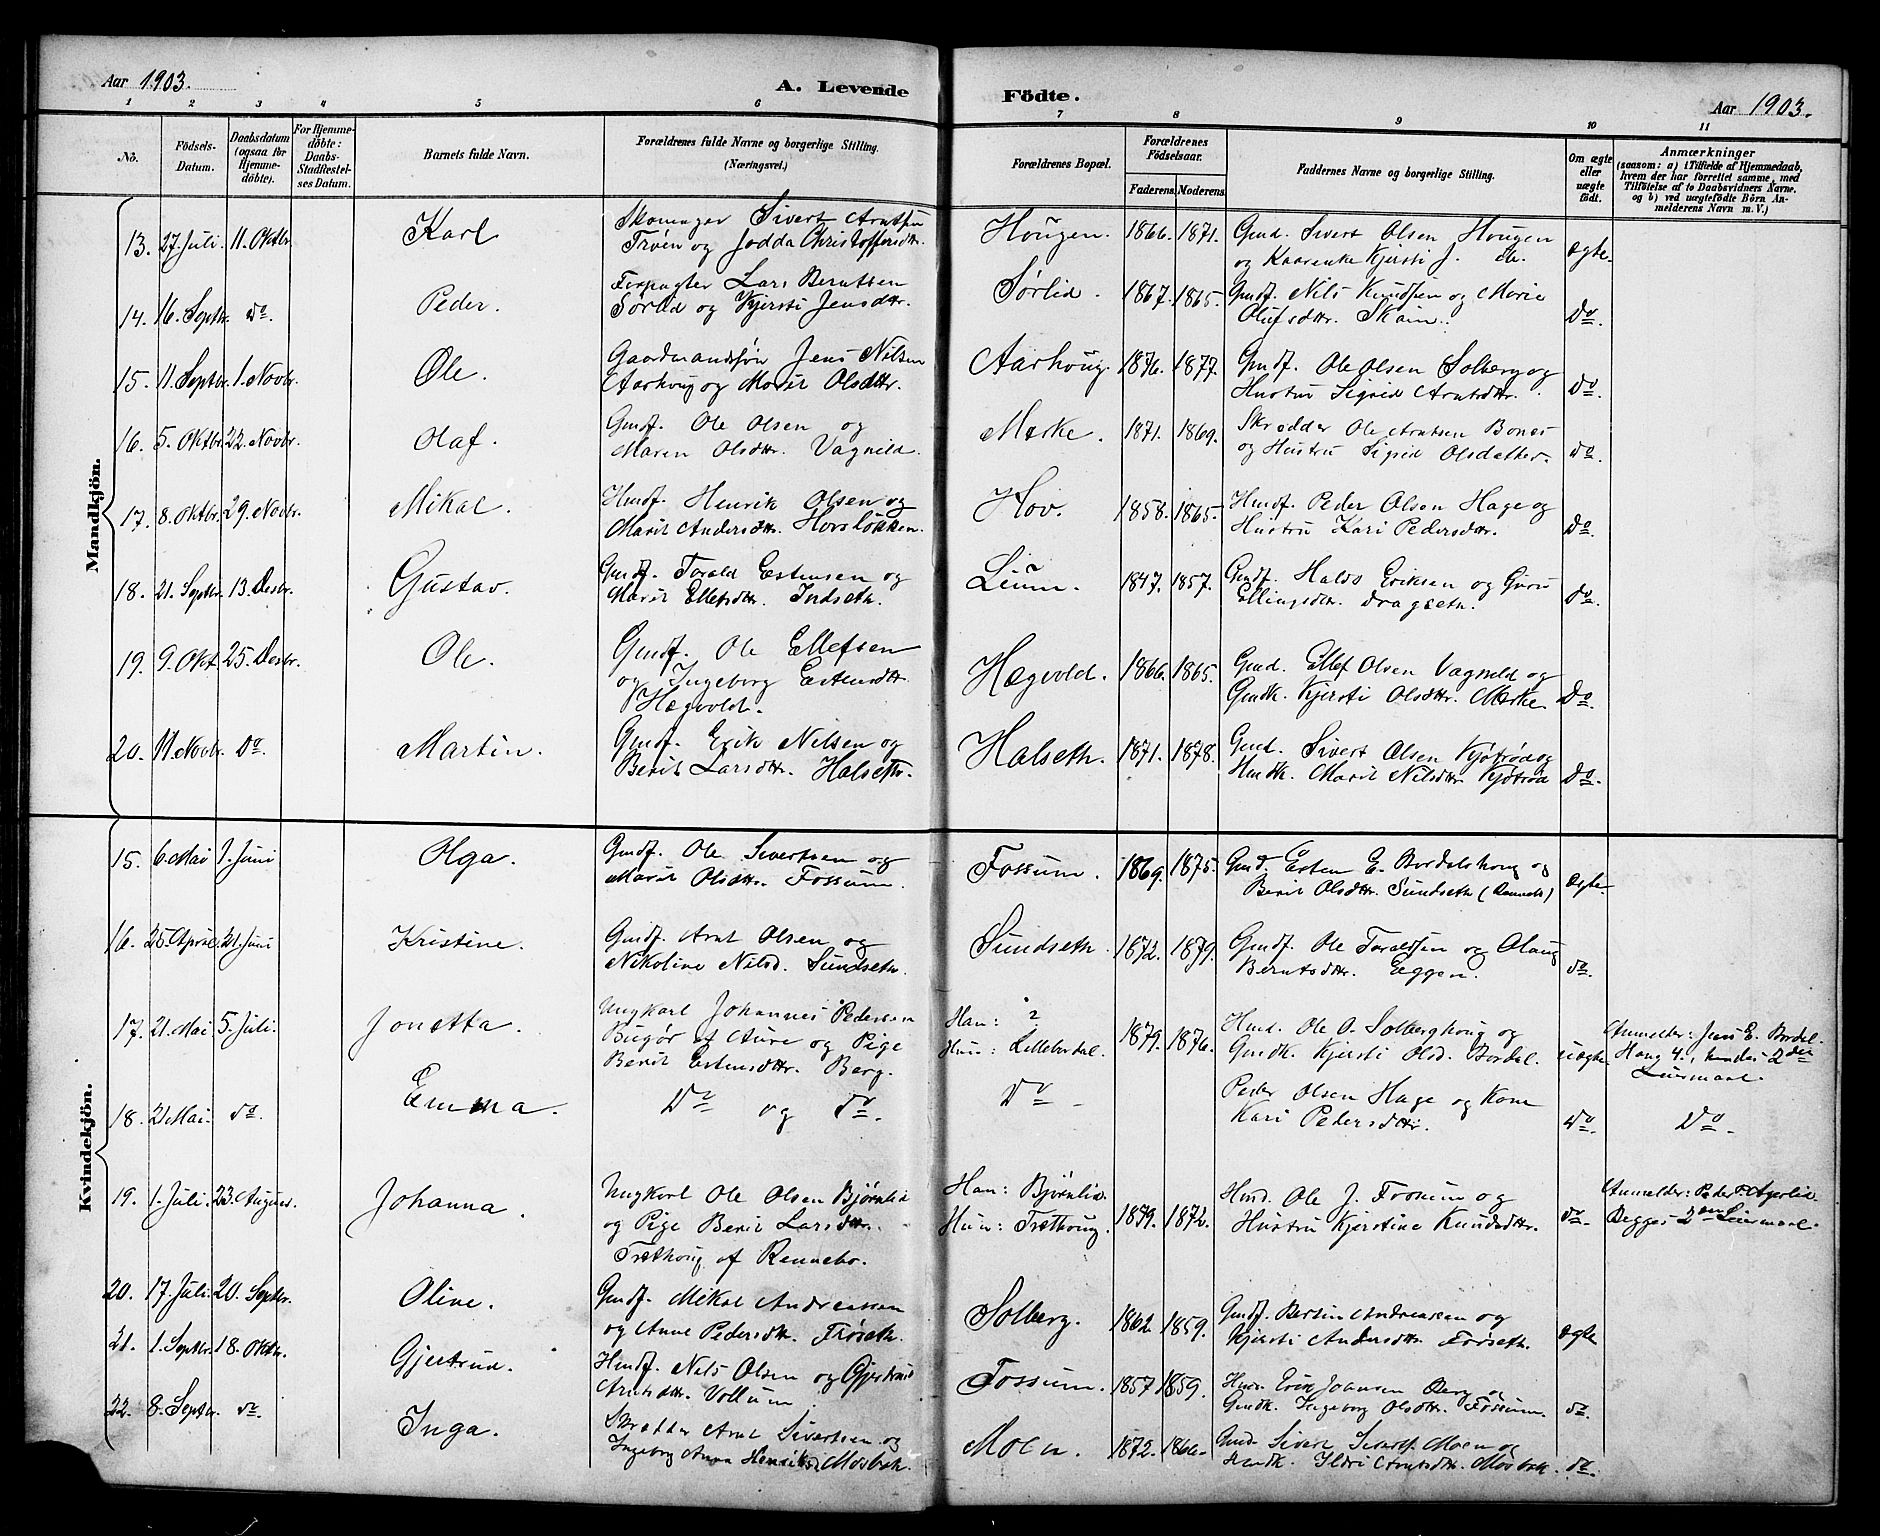 Aar 1903.
A. Levende Födte.
Aar 1903.
1 2 3 4 5 6 7 8 9 10 11
No.
Födsels-Datum.
Daabsdatum (ogsaa for Hjemme-döbte).
For Hjemme-döbte: Daabs-Stadfæstel-ses Datum.
Barnets fulde Navn.
Forældrenes fulde Navne og borgerlige Stilling. (Næringsvei.)
Forældrenes Bopæl.
Forældrenes Födselsaar.
Faderens. Moderens.
Faddernes Navne og borgerlige Stilling.
Om ægte eller uægte födt.
Anmærkninger
(saasom: a) i Tilfælde af Hjemmedaab, hvem der har forrettet samme, med Tilföielse af to Daabsvidners Navne, og b) ved uægtefödte Börn An-melderens Navn m. V.)
Mandkjön.
13. 27 Juli. 11. Oktbr. Karl Sivert Arntsen
Trøen og Jodda Christoffersdtr. Hougen. 1866. 1871. Gmd. Sivert Olsen Hougen
og Kjersti J. do. ægte.
14. 16. Septbr. do. Peder. Forpagter Lars Berntsen
Sørlid og Kjersti Jensdtr. Sørlid. 1867. 1865. Gmdf. Nils Knudsen og Marie
Olufsdtr. Skam. Do.
15. 11. Septbr. 1. Novbr. Ole. Gaardmandssøn Jens Nilsen
Aarhoug og Marit Olsdtr. Aarhoug. 1876. 1877. Gmdf. Ole Olsen Solberg og
Hustru Sigrid Arntsdtr. Do.
16. 5. Oktbr. 22. Novbr. Olaf. Gmdf. Ole Olsen og
Maren Olsdtr. Vagnild. Mærke. 1871. 1869. Skrædder Ole Arntsen Bones
og Hustru Sigrid Olsdatter. do.
17. 8. Oktbr. 29. Novbr. Mikal. Hmdf. Henrik Olsen og
Marit Andersdtr. Hovsløkken. Hov. 1858. 1865. Hmdf. Peder Olsen Hage og
Hustru Kari Pedersdtr. Do.
18. 21. Septbr. 13. Desbr. Gustav. Gmdf. Torald Estensen og
Marit Ellefsdtr. Indseth. Lium. 1847. 1857. Gmdf. Haldo Eriksen og Guru
Ellingsdtr. Dragseth. do.
19. 9. Okt. 25. Desbr. Ole. Gmdf. Ole Ellefsen
og Ingeborg Estensdtr.
Hægvold. Hægvold. 1866. 1865. Gmd. Ellef Olsen Vagnild og
Gmdk. Kjersti Olsdtr. Mærke. Do.
20. 11. Novbr. Do. Martin. Gmdf. Erik Nilsen og
Berit Larsdtr. Halseth. Halseth. 1871. 1878. Gmd. Sivert Olsen Kjøtrød og
Hmdk. Marit Nilsdtr. Kjøtrød Do.
Kvindekjön.
15. 6. Mai 1. Juni Olga. Gmdf. Ole Sivertsen og
Marit Olsdtr. Fossum. Fossum. 1869. 1875. Gmd. Esten E. Bordalshoug og
Berit Olsdtr. Sundseth (Rennebo) Ægte
16. 25. April. 21. Juni Kristine. Gmdf. Arnt Olsen og
Nikoline Nilsd. Sundseth. Sundseth. 1872. 1879. Gmdf. Ole Toraldsen og Olaug
Berntsdtr. Eggen. do.
17. 21. Mai 5. Juli. Jonetta. Ungkarl Johannes Pedersen
Bugør af Aure og Pige
Berit Estensdtr. Berg. Han: ?
Hun: Lillebordal. 1879. 1876. Hmd. Ole O. Solberghoug og
Gmdk. Kjersti Olsd. Bordal. uægte Anmelder: Jens E. Bordal.
Hans 4., hendes 2den
Leiermaal.
18. 21 Mai. do. Emma. Do og do. Do - Peder Olsen Hage og Kone
Kari Pedersdtr. do. Do -
19. 1. Juli. 23. August. Johanna. Ungkarl Ole Olsen Bjørnlid
og Pige Berit Larsdtr.
Træthoug af Rennebo. Han: Bjørnlid.
Hun: Træthoug. 1859. 1872. Hmd. Ole J. Fossum og
Hustru Kjerstine Knudsdtr. do. Anmelder: Peder Agerlid.
Begges 2den Leiermaal.
20. 17. Juli. 20. Septbr. Oline. Gmdf. Mikal Andreassen
og Anne Pedersdtr. Frøseth. Solberg. 1862. 1859. Gmdf. Bersvin Andreassen og
Kjersti Andersdtr. Frøseth. ægte
21. 1. Septbr. 18. Oktbr. Gjertrud. Hmdf. Nils Olsen og Gjertrud
Arntsdtr. Vollum. Fossum. 1857. 1859. Hmd. Erik Johnsen Berg og
Gmdk. Ingeborg Olsdtr. Fossum. do.
22. 8. Septbr. do. Inga. Skrædder Arnt Sivertsen og
Ingeborg Anna Henriksd. Mosbæk. Moen. 1872. 1866. Gmd. Sivert Sivertsen Moen og
Ildri Arntsdtr. Mosbæk. do.